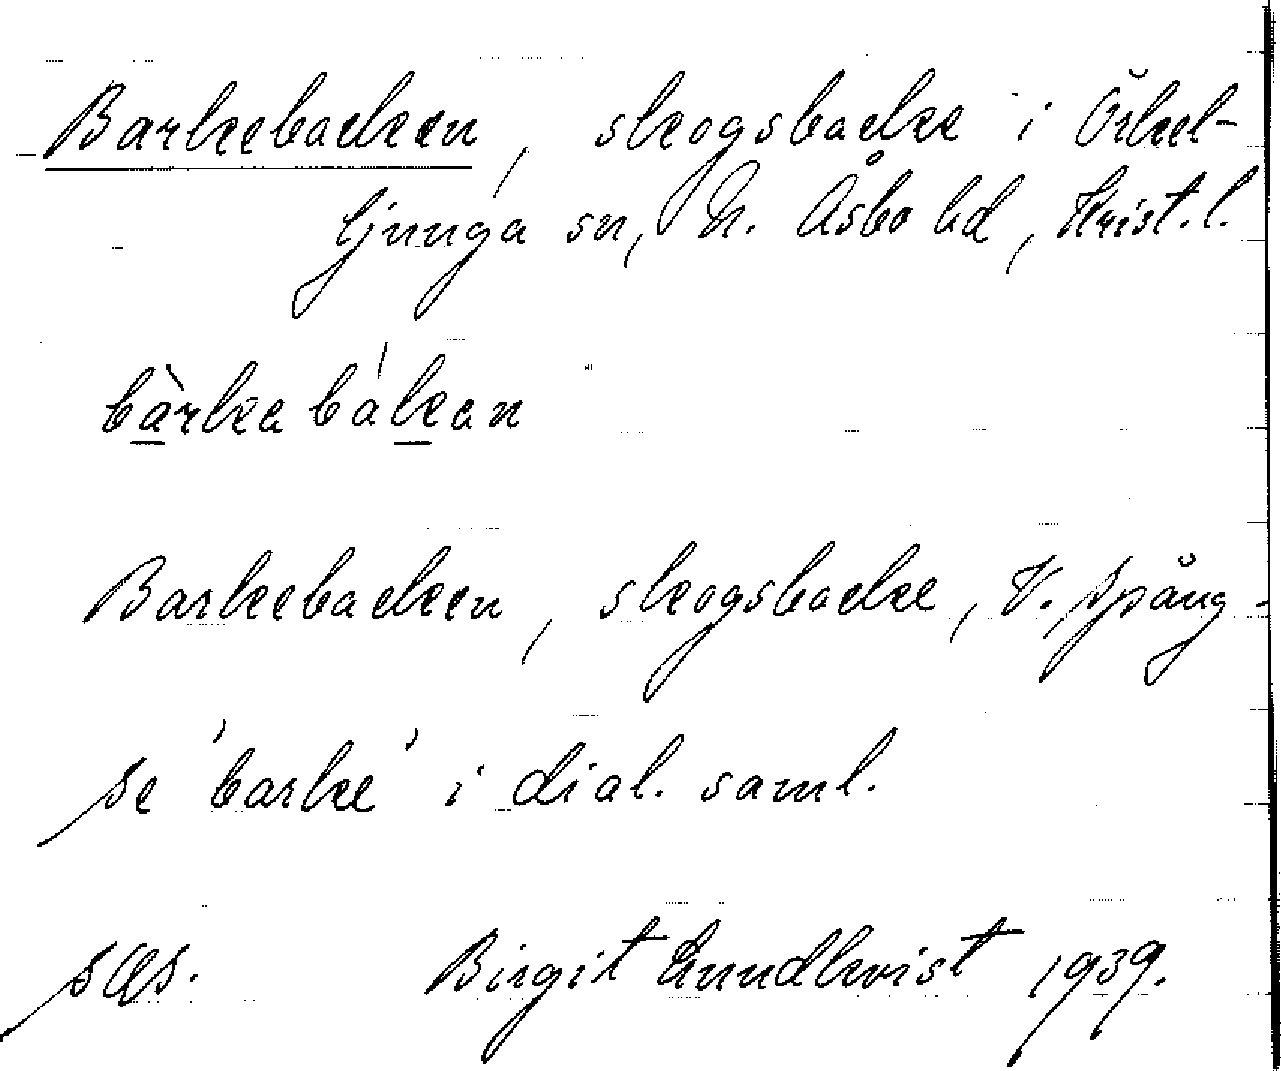 Barkebacken, skogsbacke i Örkel-
ljunga sn, N. Åsbo hd, Krist. l.
bàrkabákan
Barkebacken, skogsbacke, V. Spång.
se 'bark' i dial. saml.
sÆs. Birgit Lundkvist 1939.